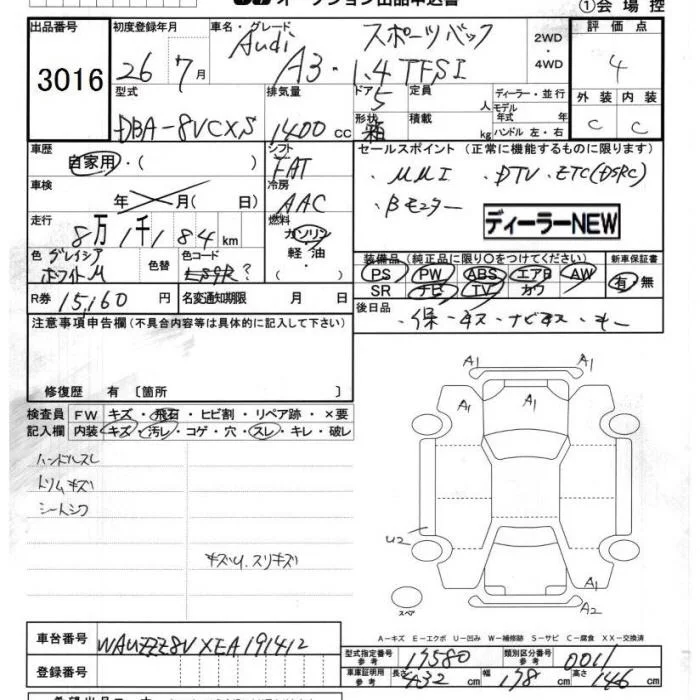 オークション出品申込書
①会場控
出品番号
3016
初度登録年月
26年7月
車名・グレード
Audi スポーツバック
A3・1.4 TFSI
2WD
・
4WD
評価点
4
外装 内装
C C
型式
DBA-8VCXS
排気量
1400 cc
ドア
5
形状
箱
定員
人
積載
kg
ディーラー・並行
モデル
年式 年
ハンドル 左・右
車歴
自家用・( )
シフト
FAT
車検
年 月( 日)
冷房
AAC
走行
8万1千184km
燃料
ガソリン
軽油
色
グレイシア
ホワイトM
色替
色コード
LS9R?
R券 15,160円
名変通知期限 月 日
セールスポイント(正常に機能するものに限ります)
・MMI ・DTV・ETC(DSRC)
・Bモニター
ディーラーNEW
装備品(純正品に限り○をつけてください)
PS PW ABS エアB AW
SR ナビ TV カワ
新車保証書
有・無
後日品
・保・キス・ナビキス・キー
注意事項申告欄(不具合内容等は具体的に記入して下さい)
修復歴 有〔箇所 〕
検査員
記入欄
FW キズ・飛石・ヒビ割・リペア跡・×要
内装 キズ・汚レ・コゲ・穴・スレ・キレ・破レ
ハンドルスレ
トリムキズ
シートシワ
キズU.スリキズ
A1
A1
A1
A1
U2
A1
A2
スペア
A-キズ E-エクボ U-凹み W-補修跡 S-サビ C-腐食 XX-交換済
車台番号
WAUZZZ8VXEA191412
登録番号
型式指定番号
参考
17580
類別区分番号
参考
0011
車庫証明用
参考
長さ 432 cm 幅 178 cm 高さ 146 cm